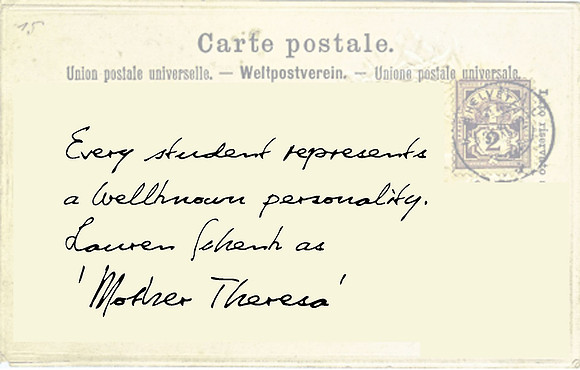 15
Carte postale.
Union postale universelle. — Weltpostverein. — Unione postale universale.
HELVETIA
2
Every student represents
a wellknown personality.
Lauren Schenk as
'Mother Theresa'